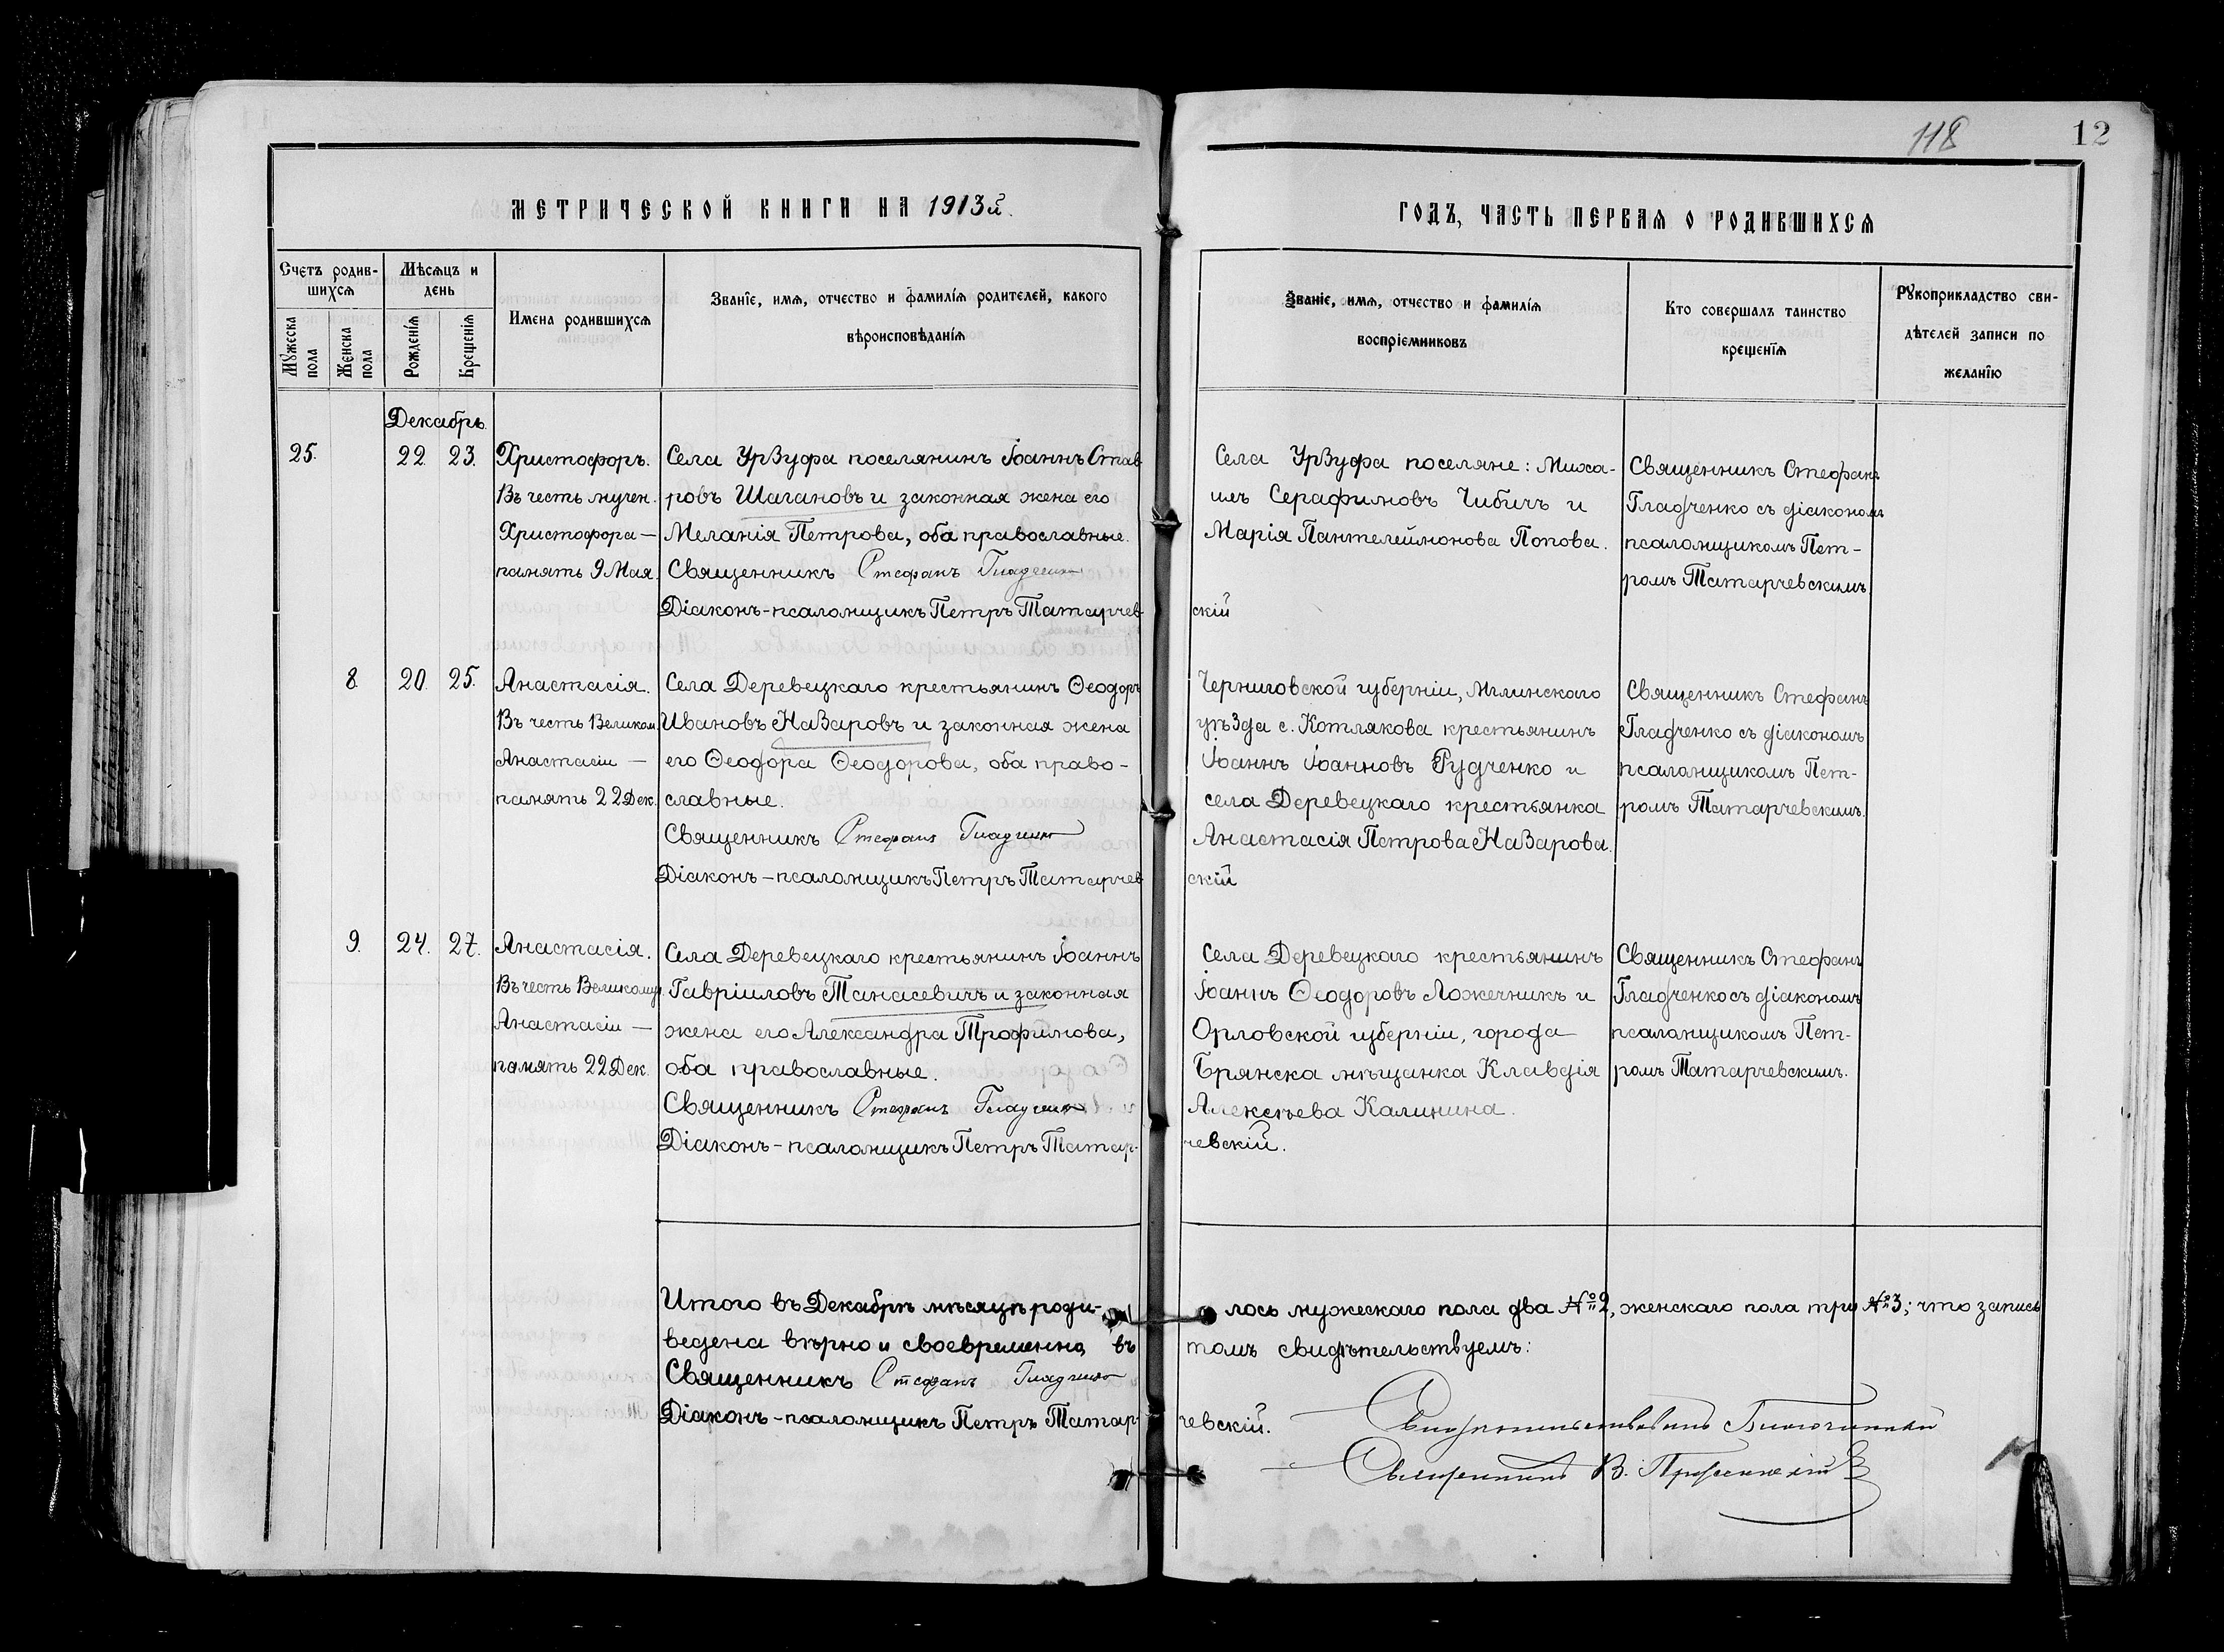 118
12
МЕТРИЧЕСКОЙ КНИГИ НА 1913й.
ГОДЪ, ЧАСТЬ ПЕРВАѦ О РОДИВШИХСѦ
Счетъ родив-
шихсѧ
Мѣсѧцъ и
день
Мꙋжеска
пола
Женска
пола
Рожденїѧ
Крещенїѧ
Имена родившихсѧ
Званїе, имѧ, отчество и фамилїѧ родителей, какого
вѣроисповѣданїѧ
Званїе, имѧ, отчество и фамилїѧ
воспрїемниковъ
Кто совершалъ таинство
крещенїѧ
Рꙋкоприкладство сви-
дѣтелей записи по
желанїю
Декабрь.
25.
22. 23.
Христофоръ.
Въ честь мучен.
Христофора —
память 9 Мая.
Села Урзуфа поселянинъ Іоаннъ Став
ровъ Шагановъ и законная жена его
Меланія Петрова, оба православные.
Священникъ Стефанъ Гладченко
Діаконъ-псаломщикъ Петръ Татарчев-
скій
Села Урзуфа поселяне: Миха-
илъ Серафимовъ Чибичъ и
Марія Пантелеймонова Попова.
Священникъ Стефанъ
Гладченко съ діакономъ
псаломщикомъ Пет-
ромъ Татарчевскимъ.
8.
20. 25.
Анастасія.
Въ честь Великом.
Анастасіи —
память 22 Дек.
Села Деревецкаго крестьянинъ Ѳеодоръ
Ивановъ Назаровъ и законная жена
его Ѳеодора Ѳеодорова, оба право-
славные.
Священникъ Стефанъ Гладченко
Діаконъ-псаломщикъ Петръ Татарчев
скій
Черниговской губерніи, Мглинскаго
уѣзда с. Котлякова крестьянинъ
Іоаннъ Іоанновъ Рудченко и
села Деревецкаго крестьянка
Анастасія Петрова Назарова.
Священникъ Стефанъ
Гладченко съ діакономъ
псаломщикомъ Пет-
ромъ Татарчевскимъ.
9.
24. 27.
Анастасія.
Въ честь Великомуч.
Анастасіи —
память 22 Дек.
Села Деревецкаго крестьянинъ Іоаннъ
Гавріиловъ Танасевичъ и законная
жена его Александра Трофимова,
оба православные.
Священникъ Стефанъ Гладченко
Діаконъ-псаломщикъ Петръ Татар-
чевскій.
Села Деревецкаго крестьянинъ
Іоаннъ Ѳеодоровъ Ложечникъ и
Орловской губерніи, города
Брянска мѣщанка Клавдія
Алексѣева Калинина.
Священникъ Стефанъ
Гладченко съ діакономъ
псаломщикомъ Пет-
ромъ Татарчевскимъ.
Итого въ Декабрѣ мѣсяцѣ роди-лось мужескаго пола два №2, женскаго пола три №3; что запись
ведена вѣрно и своевременно, въ томъ свидѣтельствуемъ:
Священникъ Стефанъ Гладченко
Діаконъ-псаломщикъ Петръ Татар-чевскій.
Свидѣтельствовалъ Благочинный
Священникъ В.